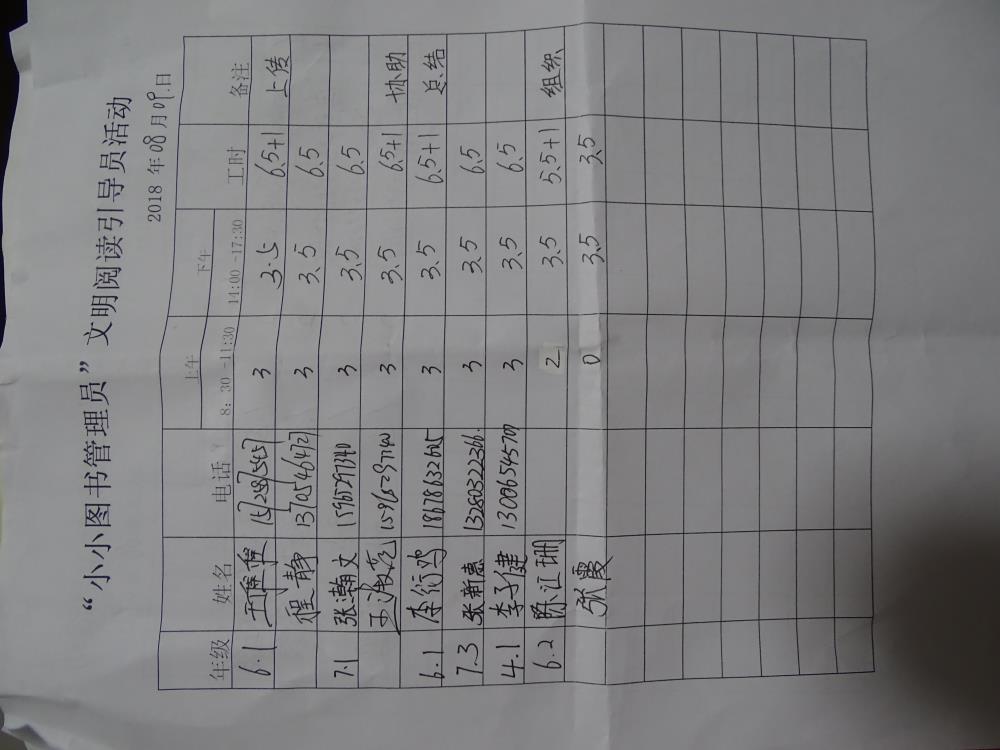 “小小图书管理员”文明阅读引导员活动
2018 年 08 月 09 日
年级 姓名 电话 上午 下午 工时 备注
8：30 -11:30 14:00 -17:30
6.1 3 3.5 6.5+1 上传
程静 13705464721 3 3.5 6.5
7.1 张瀚文 15965297340 3 3.5 6.5
3 3.5 6.5+1 协助
6.1 李衍鸿 18678632605 3 3.5 6.5+1 总结
7.3 张新惠 13280322366 3 3.5 6.5
4.1 李子健 13006545707 3 3.5 6.5
6.2 陈江珊 2 3.5 5.5+1 组织
张霞 0 3.5 3.5